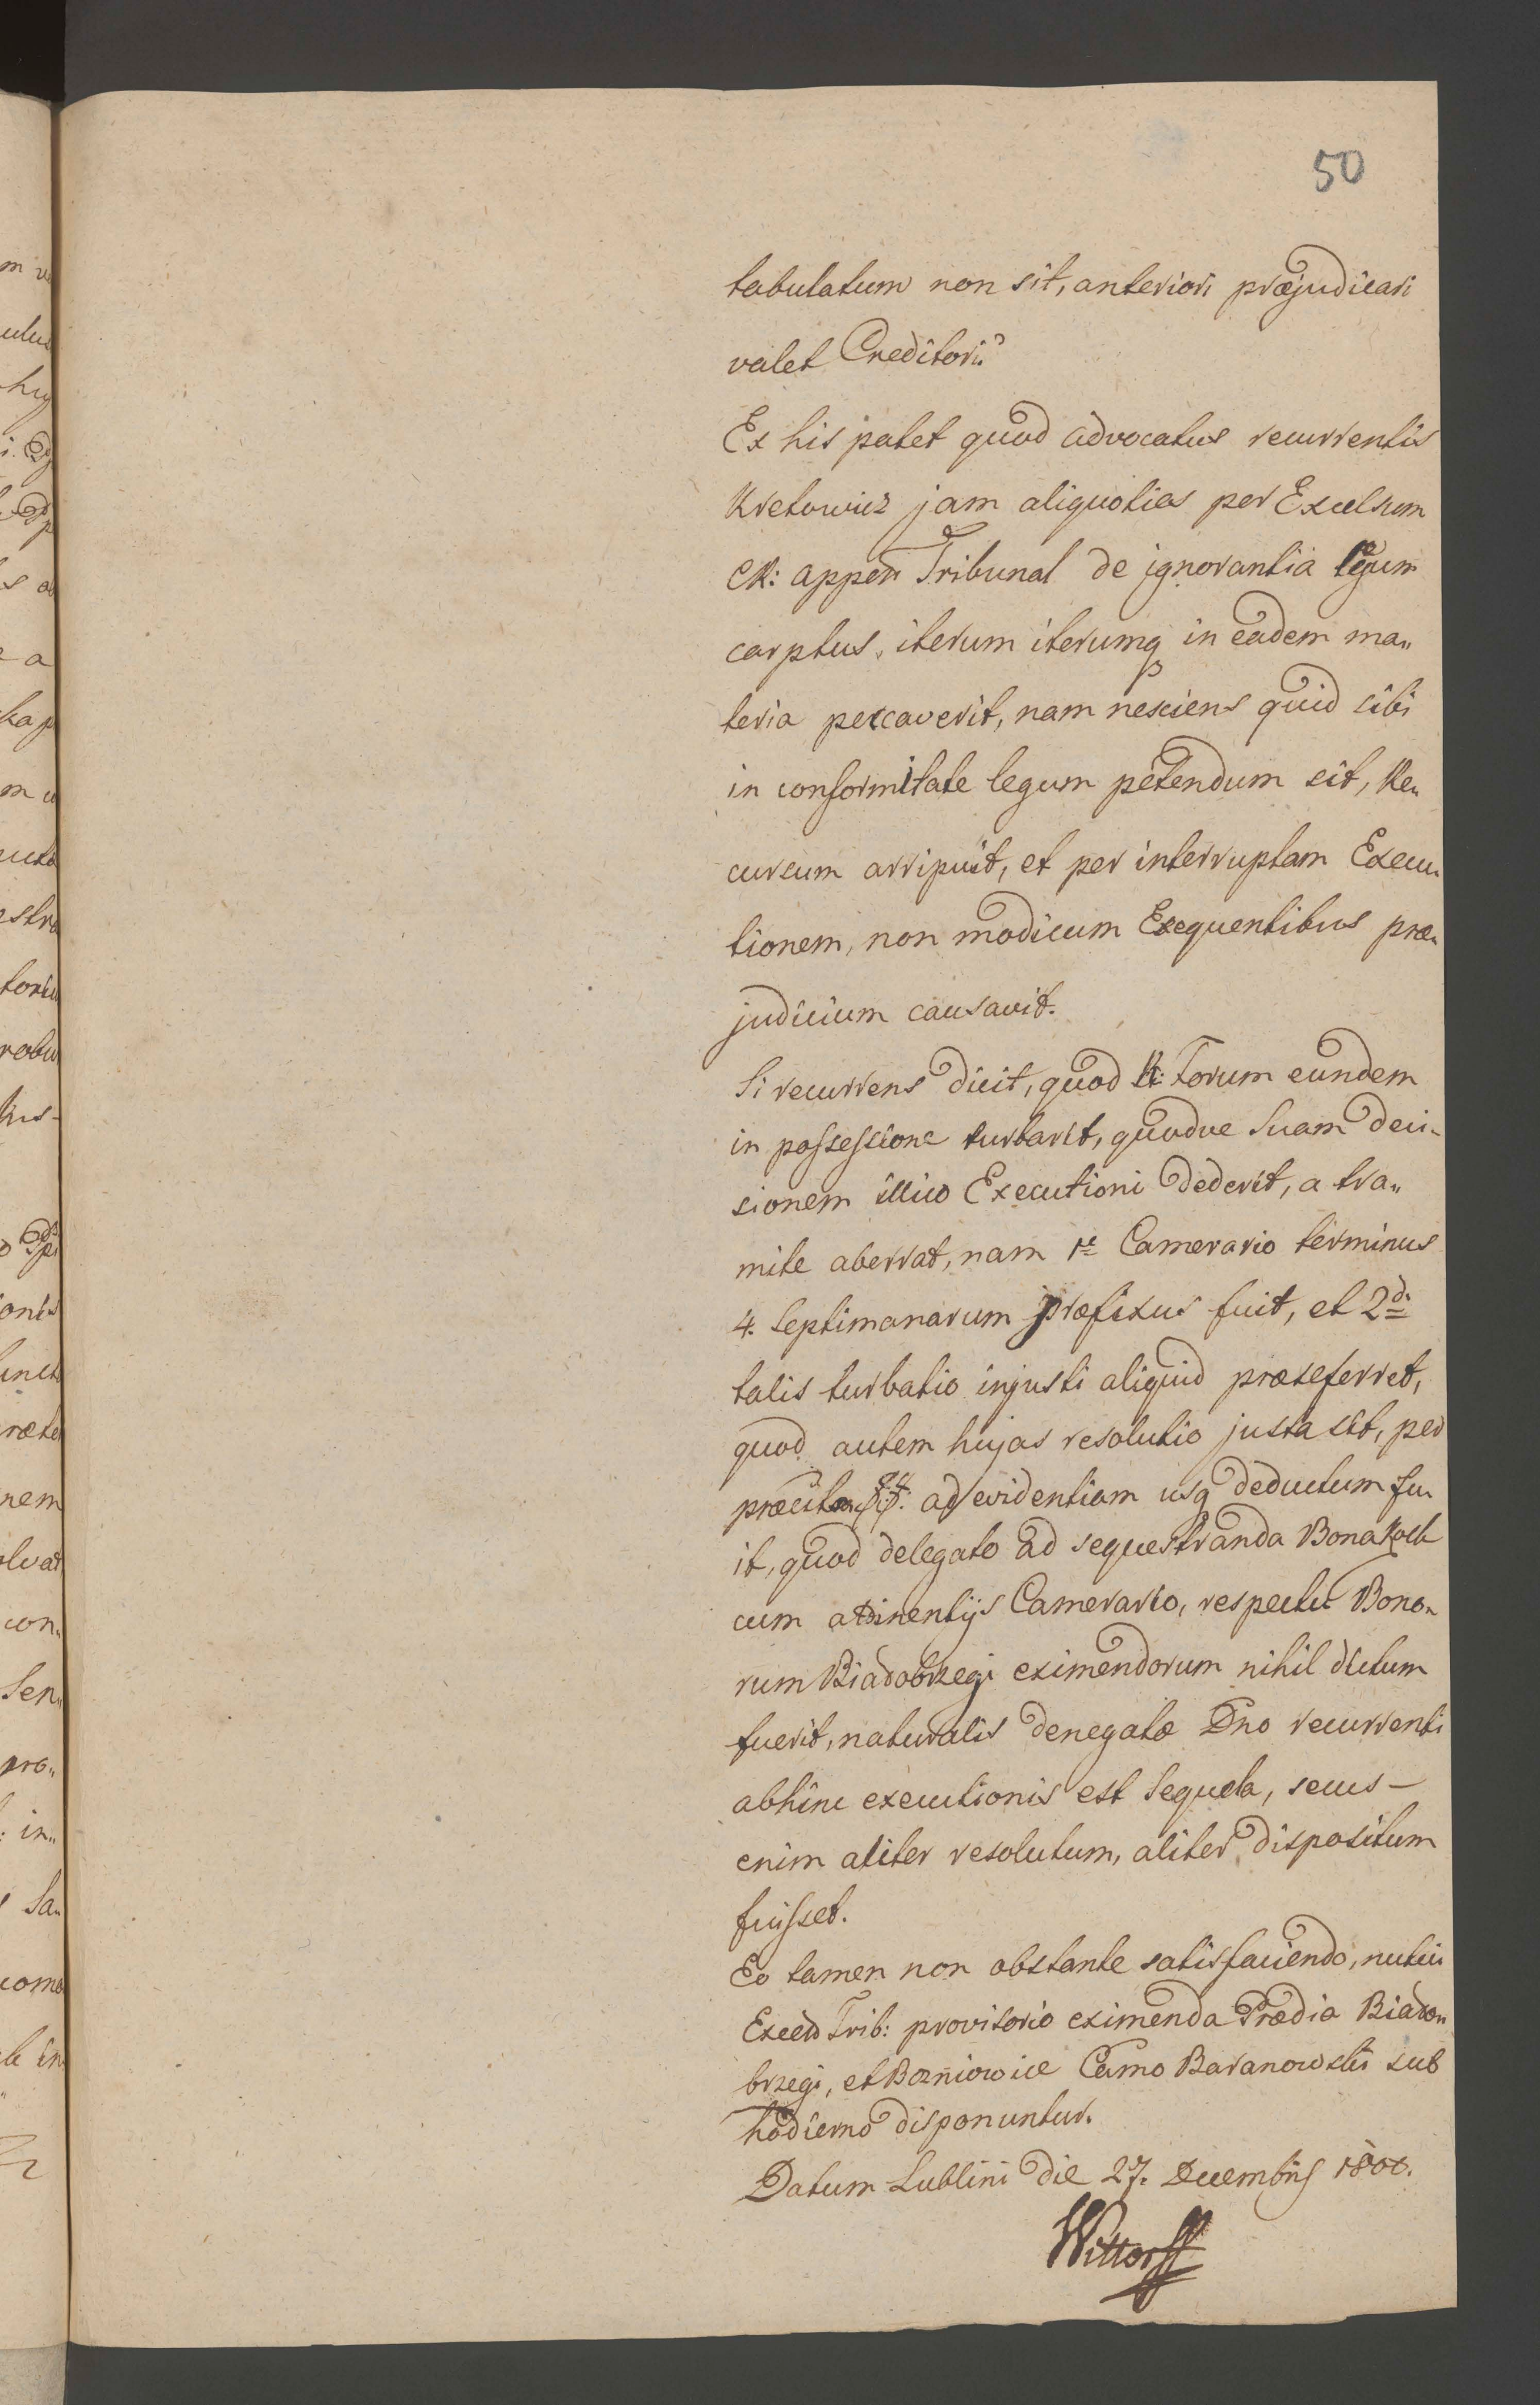 50
tabulatum non sit, anteriori præjudicari
valet Creditori?
Ex his patet quod advocatus recurrentis
Kretowicz jam aliquoties per Excelsum
CR: appen Tribunal de ignorantia legum
carptus, iterum iterumq in eadem ma„
teria peccaverit, nam nesciens quid sibi
in conformitate legum petendum sit, Re„
cursum arripuit, et per interruptam Execu„
tionem, non modicum Exequentibus præ„
judicium causavit.
Si recurrens dicit, quod R: Forum eundem
in possessione turbarit, quodve Suam deci„
sionem illico Executioni dederit, a tra„
mite aberrat, nam 1º Camerario terminus
4. Septimanarum præfixus fuit, et 2do
talis turbatio injusti aliquid præseferret,
quod autem hujas resolutio justa sit, per
ad evidentiam usq deductum fu„
it, quod delegato ad sequestranda Bona
cum attinentijs Camerario, respectu Bono„
rum Biadobrzegi eximendorum nihil dictum
fuerit, naturalis denegatæ Dno recurrenti
abhinc executionis est Sequela, secus –
enim aliter resolutum, aliter dispositum
fuisset.
Eo tamen non obstante satisfaciendo, nutui
Trib: provisorio eximenda Prædia Biado„
brzegi, et Bozniowice Camo Baranowski sub
hodierno disponuntur.
Datum Lublini die 27. Decembris 1800.
Wittorff